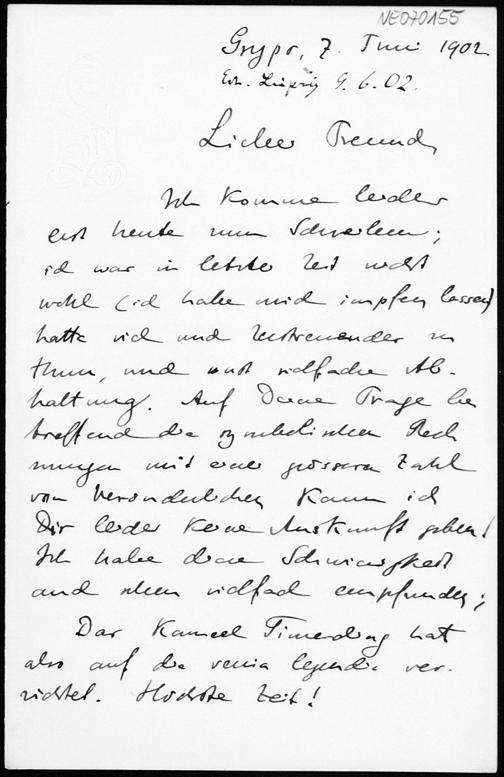 NE070155
Gryps, 7. Juni 1902
Erh. Leipzig 9.6.02.
Lieber Freund,
Ich komme leider
erst heute zum Schreiben;
ich war in letzter Zeit nicht
wohl (ich habe mich impfen lassen)
hatte viel und Zerstreuendes zu
thun, und sonst vielfache Ab-
haltung. Auf Deine Frage be
treffend die symbolischen Rech
nungen mit einer grösseren Zahl
von Veränderlichen kann ich
Dir leider keine Auskunft geben!
Ich habe diese Schwierigkeit
auch schon vielfach empfunden;
Das Kameel Timerding hat
also auf die venia legendi ver-
zichtet. Höchste Zeit!